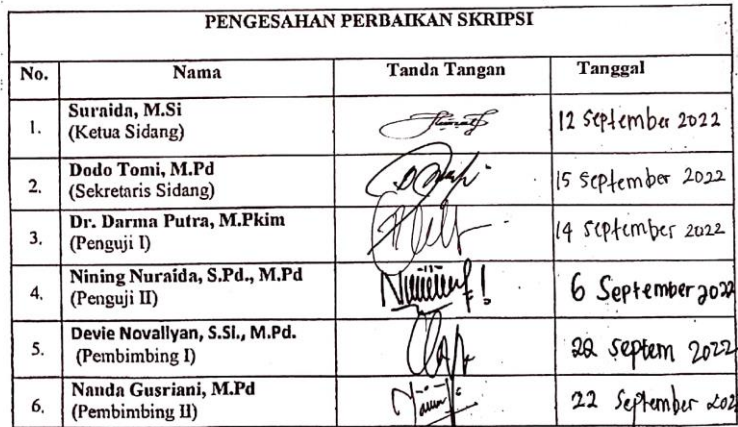 PENGESAHAN PERBAIKAN SKRIPSI
No. Nama Tanda Tangan Tanggal
1. Suraida, M.Si
(Ketua Sidang)
12 September 2022
2. Dodo Tomi, M.Pd
(Sekretaris Sidang)
15 September 2022
3. Dr. Darma Putra, M.Pkim
(Penguji I)
14 September 2022
4. Nining Nuraida, S.Pd., M.Pd
(Penguji II)
6 September 2022
5. Devie Novallyan, S.Si., M.Pd.
(Pembimbing I)
22 Septem 2022
6. Nanda Gusriani, M.Pd
(Pembimbing II)
22 September 202